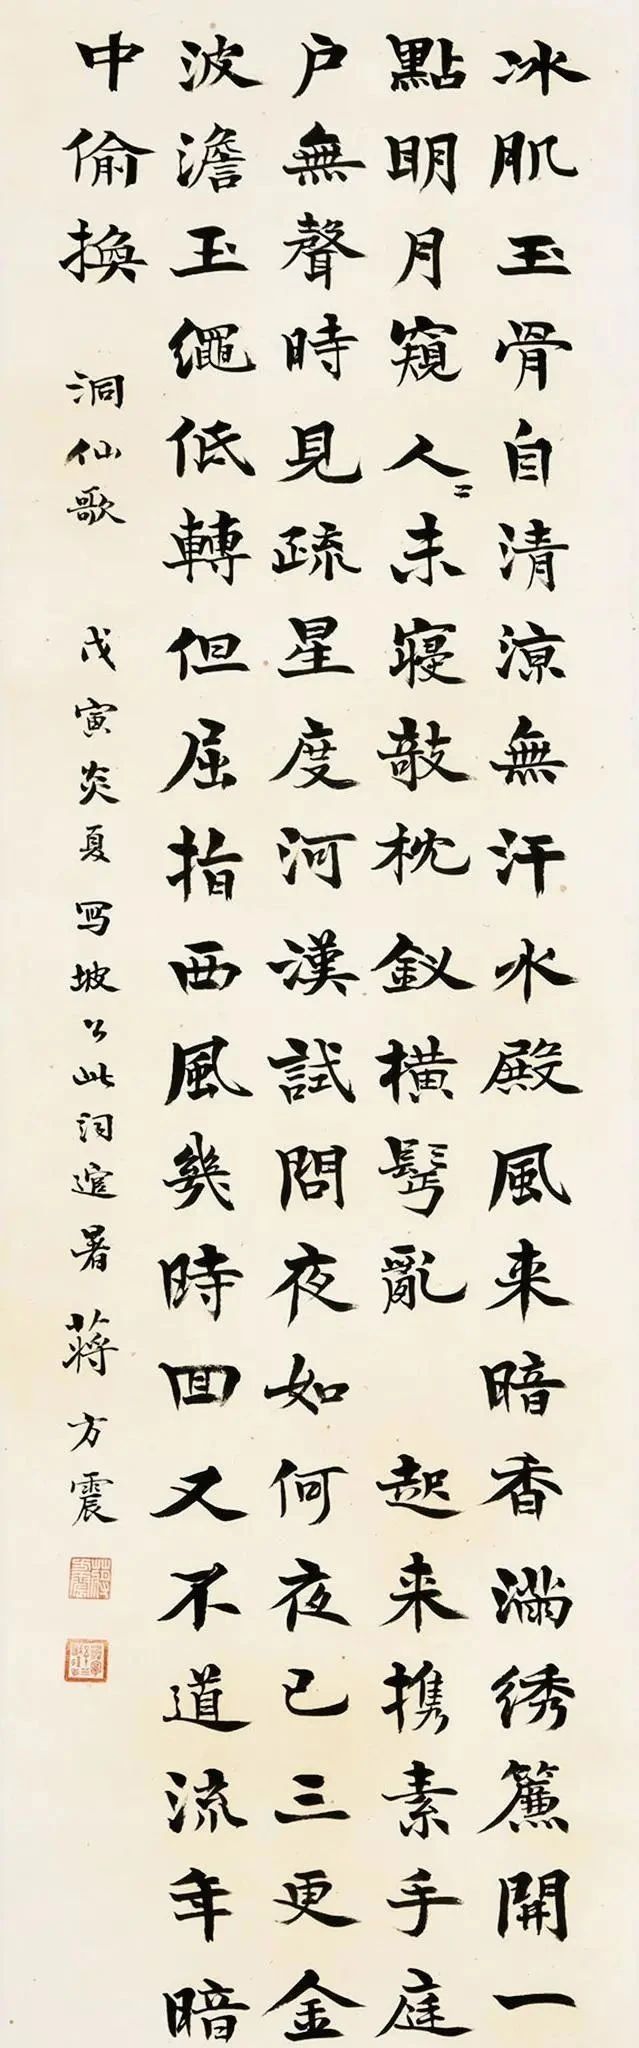 冰肌玉骨自清涼無汗水殿風来暗香滿綉簾開一
點明月窺人〻未寢敧枕釵橫髩亂　起来攜素手庭
户無聲時見疏星度河漢試問夜如何夜已三更金
波澹玉繩低轉但屈指西風幾時回又不道流年暗
中偷換　洞仙歌　戊寅炎夏寫坡公此詞遣暑　蔣方震